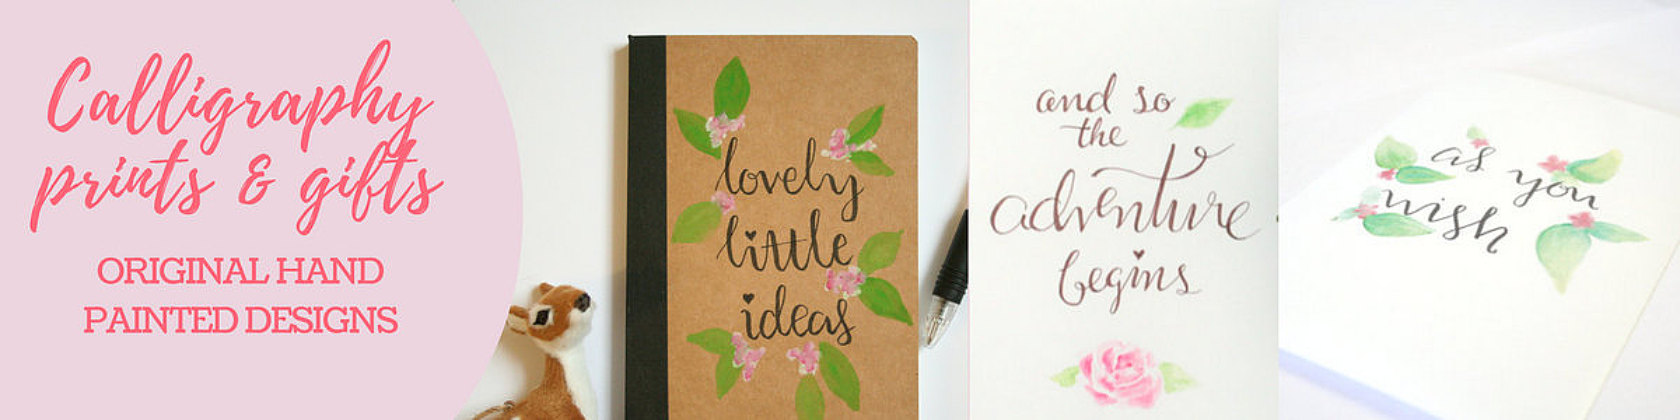 Calligraphy
prints & gifts
ORIGINAL HAND
PAINTED DESIGNS
lovely
little
ideas
and so
the
adventure
begins
as you
wish